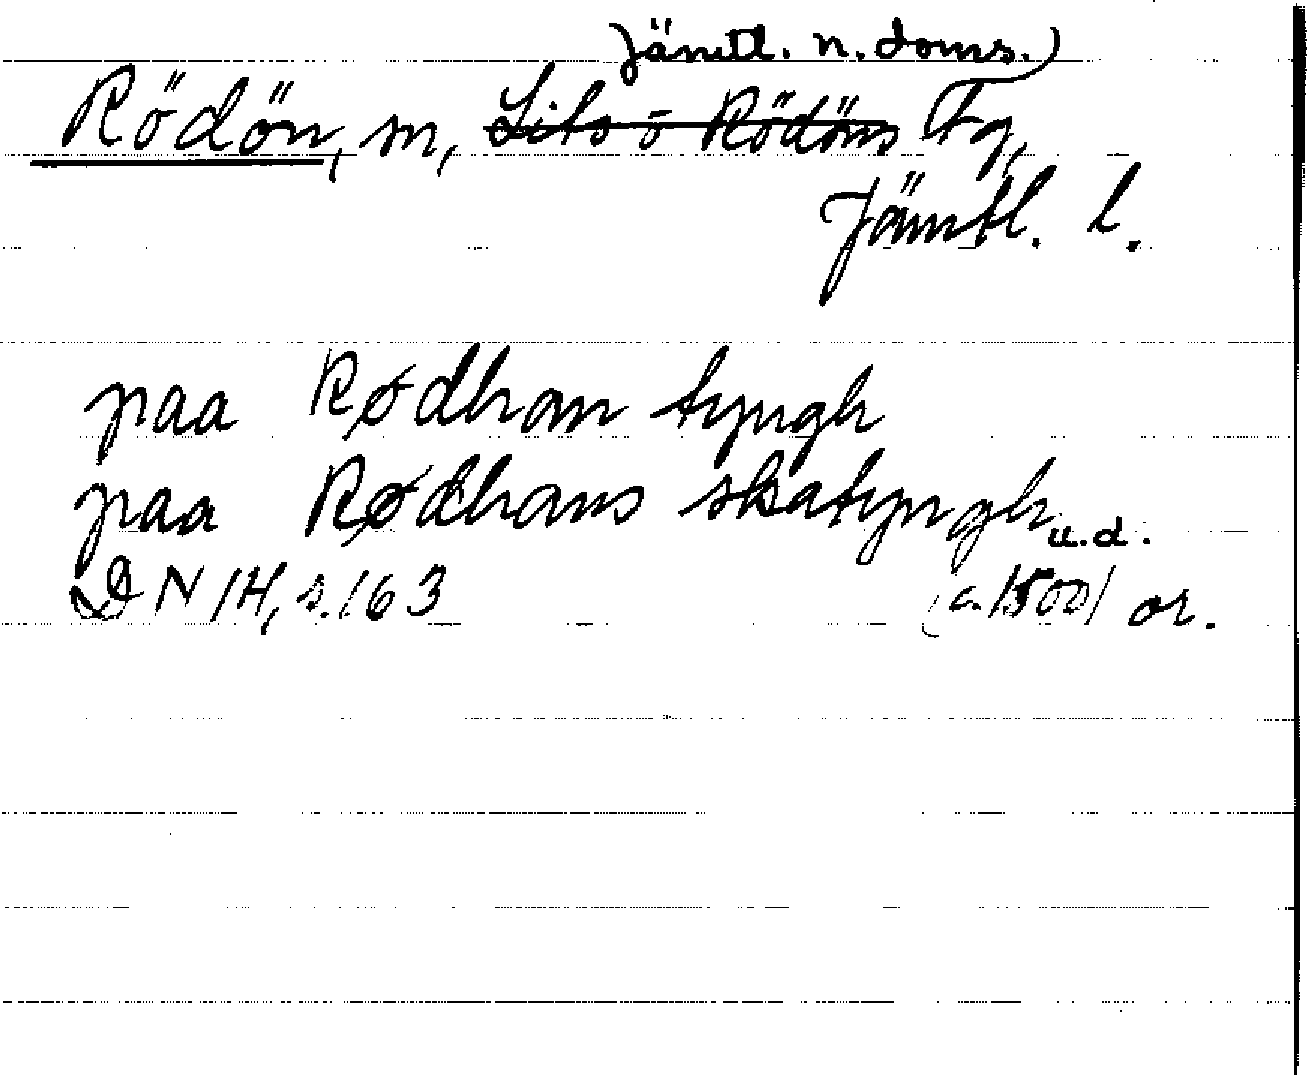 Jämtl. n. doms.)
Rödön, sn, Lits o Rödöns Tg,
Jämtl. l.
paa Rødhan tyngh
paa Rødhans skatyngh u.d.
DN 14, s. 163 (c. 1500) or.